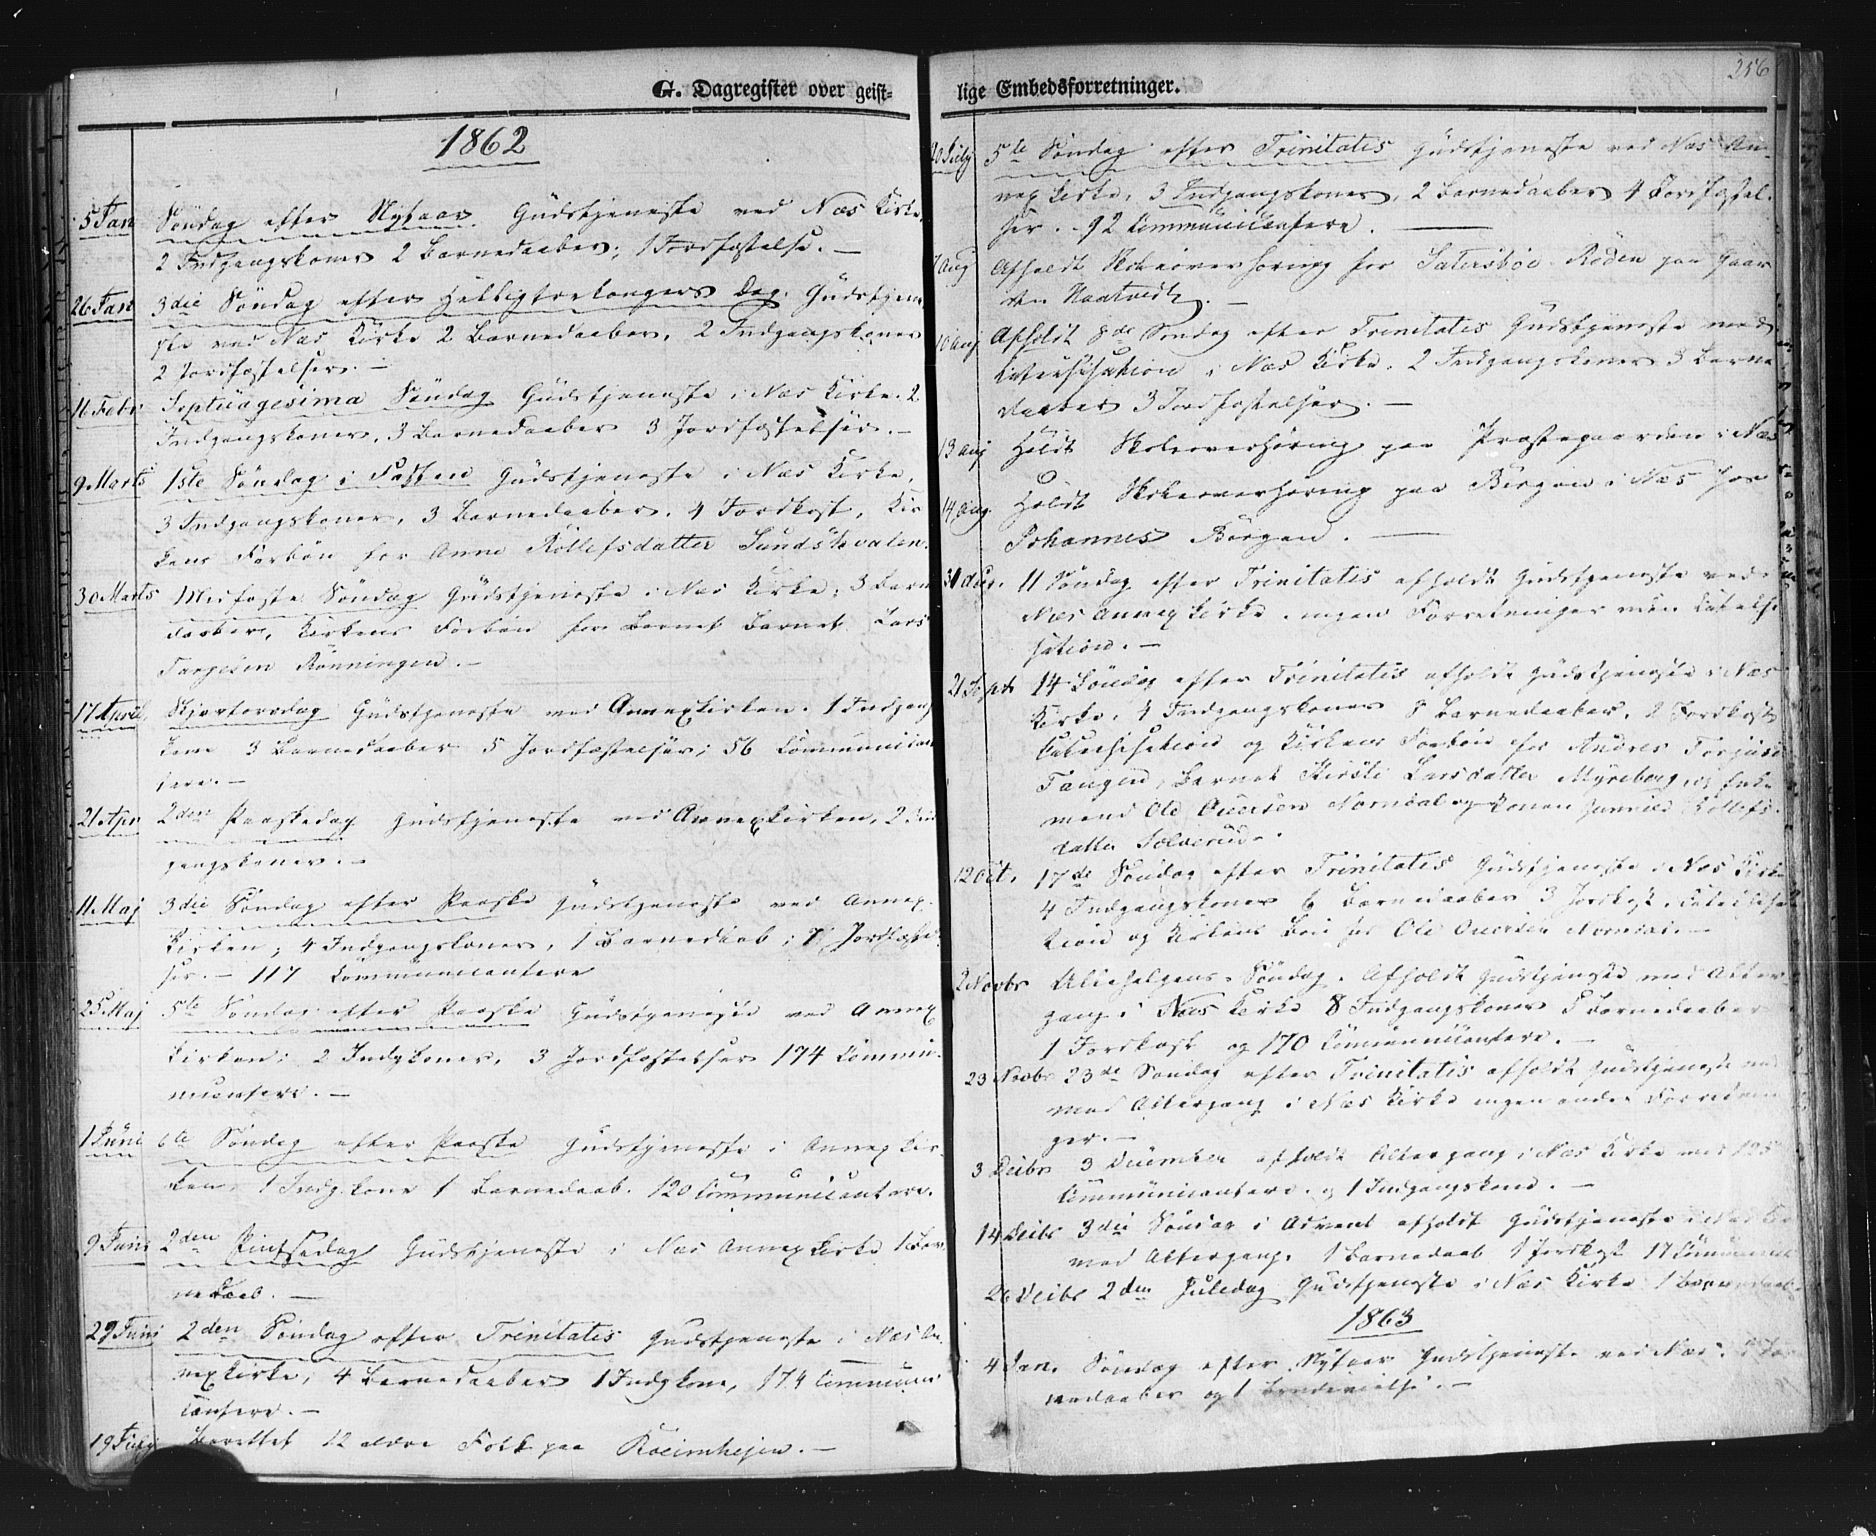 G. Dagregister over geist-
1862
5 Jan Søndag efter Nytaar Gudstjeneste ved Næs Kirke,
2 Indgangskoner 2 Barnedaaber, 1 Jordfæstelse. —
26 Jan 3die Søndag efter Helligtrekongers Dag. Gudstjene
ste ved Næs Kirke 2 Barnedaaber, 2 Indgangskoner
2 Jordfæstelser. —
16 Febr Septuagesima Søndag Gudstjeneste i Næs Kirke. 2
Indgangskoner, 3 Barnedaaber 3 Jordfæstelser. —
9 Marts 1ste Søndag i Fasten Gudstjeneste i Næs Kirke,
3 Indgangskoner, 3 Barnedaaber. 4 Jordkast, Kir
kens Forbøn for Anne Rollefsdatter
30 Marts Midfaste Søndag Gudstjeneste i Næs Kirke, 3 Barne
daaber, Kirkens Forbøn for Barnet Barnet Lars
Rønningen. —
17 April Skjærtorsdag Gudstjeneste ved Annexkirken. 1 Indgangs
kone 3 Barnedaaber 5 Jordfæstelser; 56 Communican
tere. —
21 Apr 2den Paaskedag Gudstjeneste ved Annexkirken, 2 Ind
gangskoner. —
11 Maj 3die Søndag efter Paaske Gudstjeneste ved Annex
Kirken; 4 Indgangskoner, 1 Barnedaab; Jordfæstel
ser. — 117 Communicantere
25 Maj 5te Søndag efter Paaske Gudstjeneste ved Annex
Kirken: 2 Indgkoner, 3 Jordfæstelser 174 Commu
nicantere. —
1 Juni 6te Søndag efter Paaske Gudstjeneste i Annexkir
ken, 1 Indg.kone 1 Barnedaab. 120 Communicantere.
9 Juni 2den Pintsedag Gudstjeneste i Næs Annexkirke 1 Bar
nedaab. —
29 Juni 2den Søndag efter Trinitatis Gudstjeneste i Næs An
nexkirke, 4 Barnedaaber 1 Indgkone, 174 Communi
cantere. —
19 July Berettet 12 ældre Folk paa
lige Embedsforretninger.
256
20 July 5te Søndag efter Trinitatis Gudstjeneste ved Næs An
nexkirke, 3 Indgangskoner, 2 Barnedaaber 4 Jordfæstel
ser. 92 Communicantere. —
7 Aug Afholdt Skoleoverhøring for Saterbøe Roden paa Gaar
den —
10 Aug Afholdt 8de Søndag efter Trinitatis Gudstjeneste med
Catechisation i Næs Kirke. 2 Indgangskoner 3 Barne
daaber 3 Jordfæstelser. —
13 Aug Holdt Skoleoverhøring paa Præstegaarden i Næs
14 Aug. Holdt Skoleoverhøring paa Børgen i Næs hos
Johannes Børgen. —
31 Aug. 11 Søndag efter Trinitatis afholdt Gudstjeneste ved
Næs Annexkirke. ingen Forretninger uden Cateche
sation. —
21 Sept 14 Søndag efter Trinitatis afholdt Gudstjeneste i Næs
Kirke, 4 Indgangskoner 8 Barnedaaber, 2 Jordkast
Catechisation og Kirkens Forbøn for Andres
Tangen, Barnet Kirsti Larsdatter Myreberg, og
mand Ole Nordal og Konen Gunild Rollefs
datter
12 Oct. 17de Søndag efter Trinitatis Gudstjeneste i Næs Kirke
4 Indgangskoner 6 Barnedaaber 3 Jordkast, Catechisa
tion og Kirkens Bøn for Ole —
2 Novbr Allehelgens-Søndag. Afholdt Gudstjeneste med Alter
gang i Næs Kirke 8 Indgangskoner 5 Barnedaaber
1 Jordkast og 170 Communicantere. —
23 Novbr 23de Søndag efter Trinitatis afholdt Gudstjeneste
med Altergang i Næs Kirke ingen andre Forretnin
ger. —
3 Decbr 3 December afholdt Altergang i Næs Kirke med 125
Communicantere. og 1 Indgangskone. —
14 Decbr 3die Søndag i Advent afholdt Gudstjeneste i Næs
med Altergang. 1 Barnedaab 1 Jordkast 17
26 Decbr 2den Juledag Gudstjeneste i Næs Kirke 1 Barnedaab.
1863
4 Jan. Søndag efter Nytaar Gudstjeneste ved Næs.
nedaaber og 1 Brudevielse. —